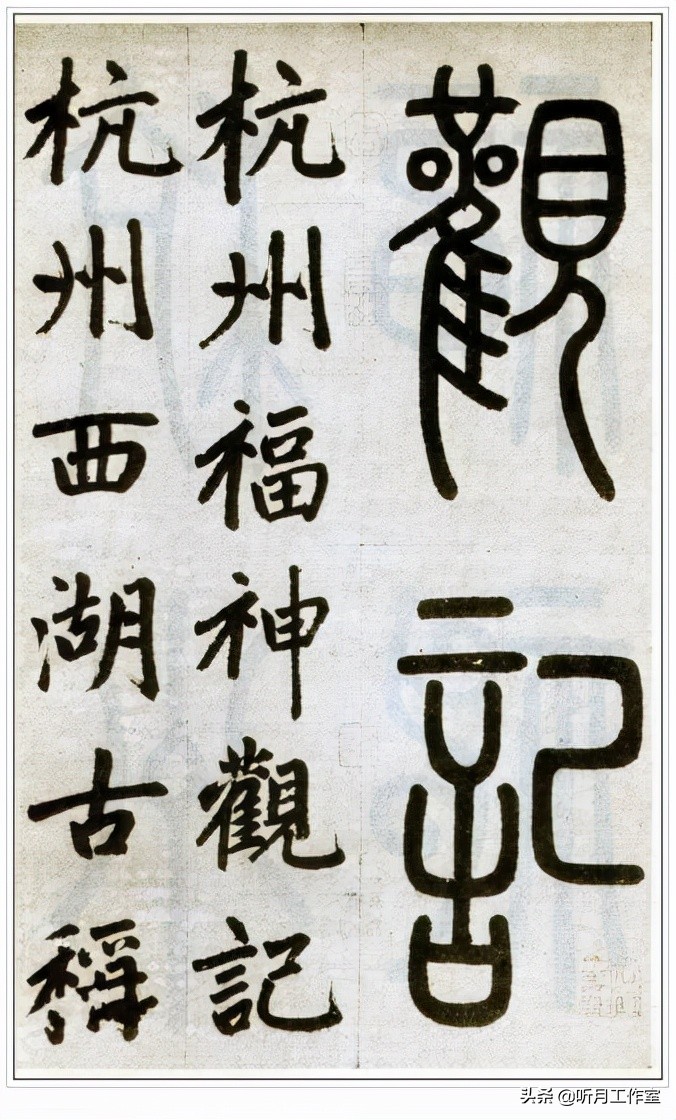 觀記
杭州福神觀記
杭州西湖古稱
头条 @听月工作室